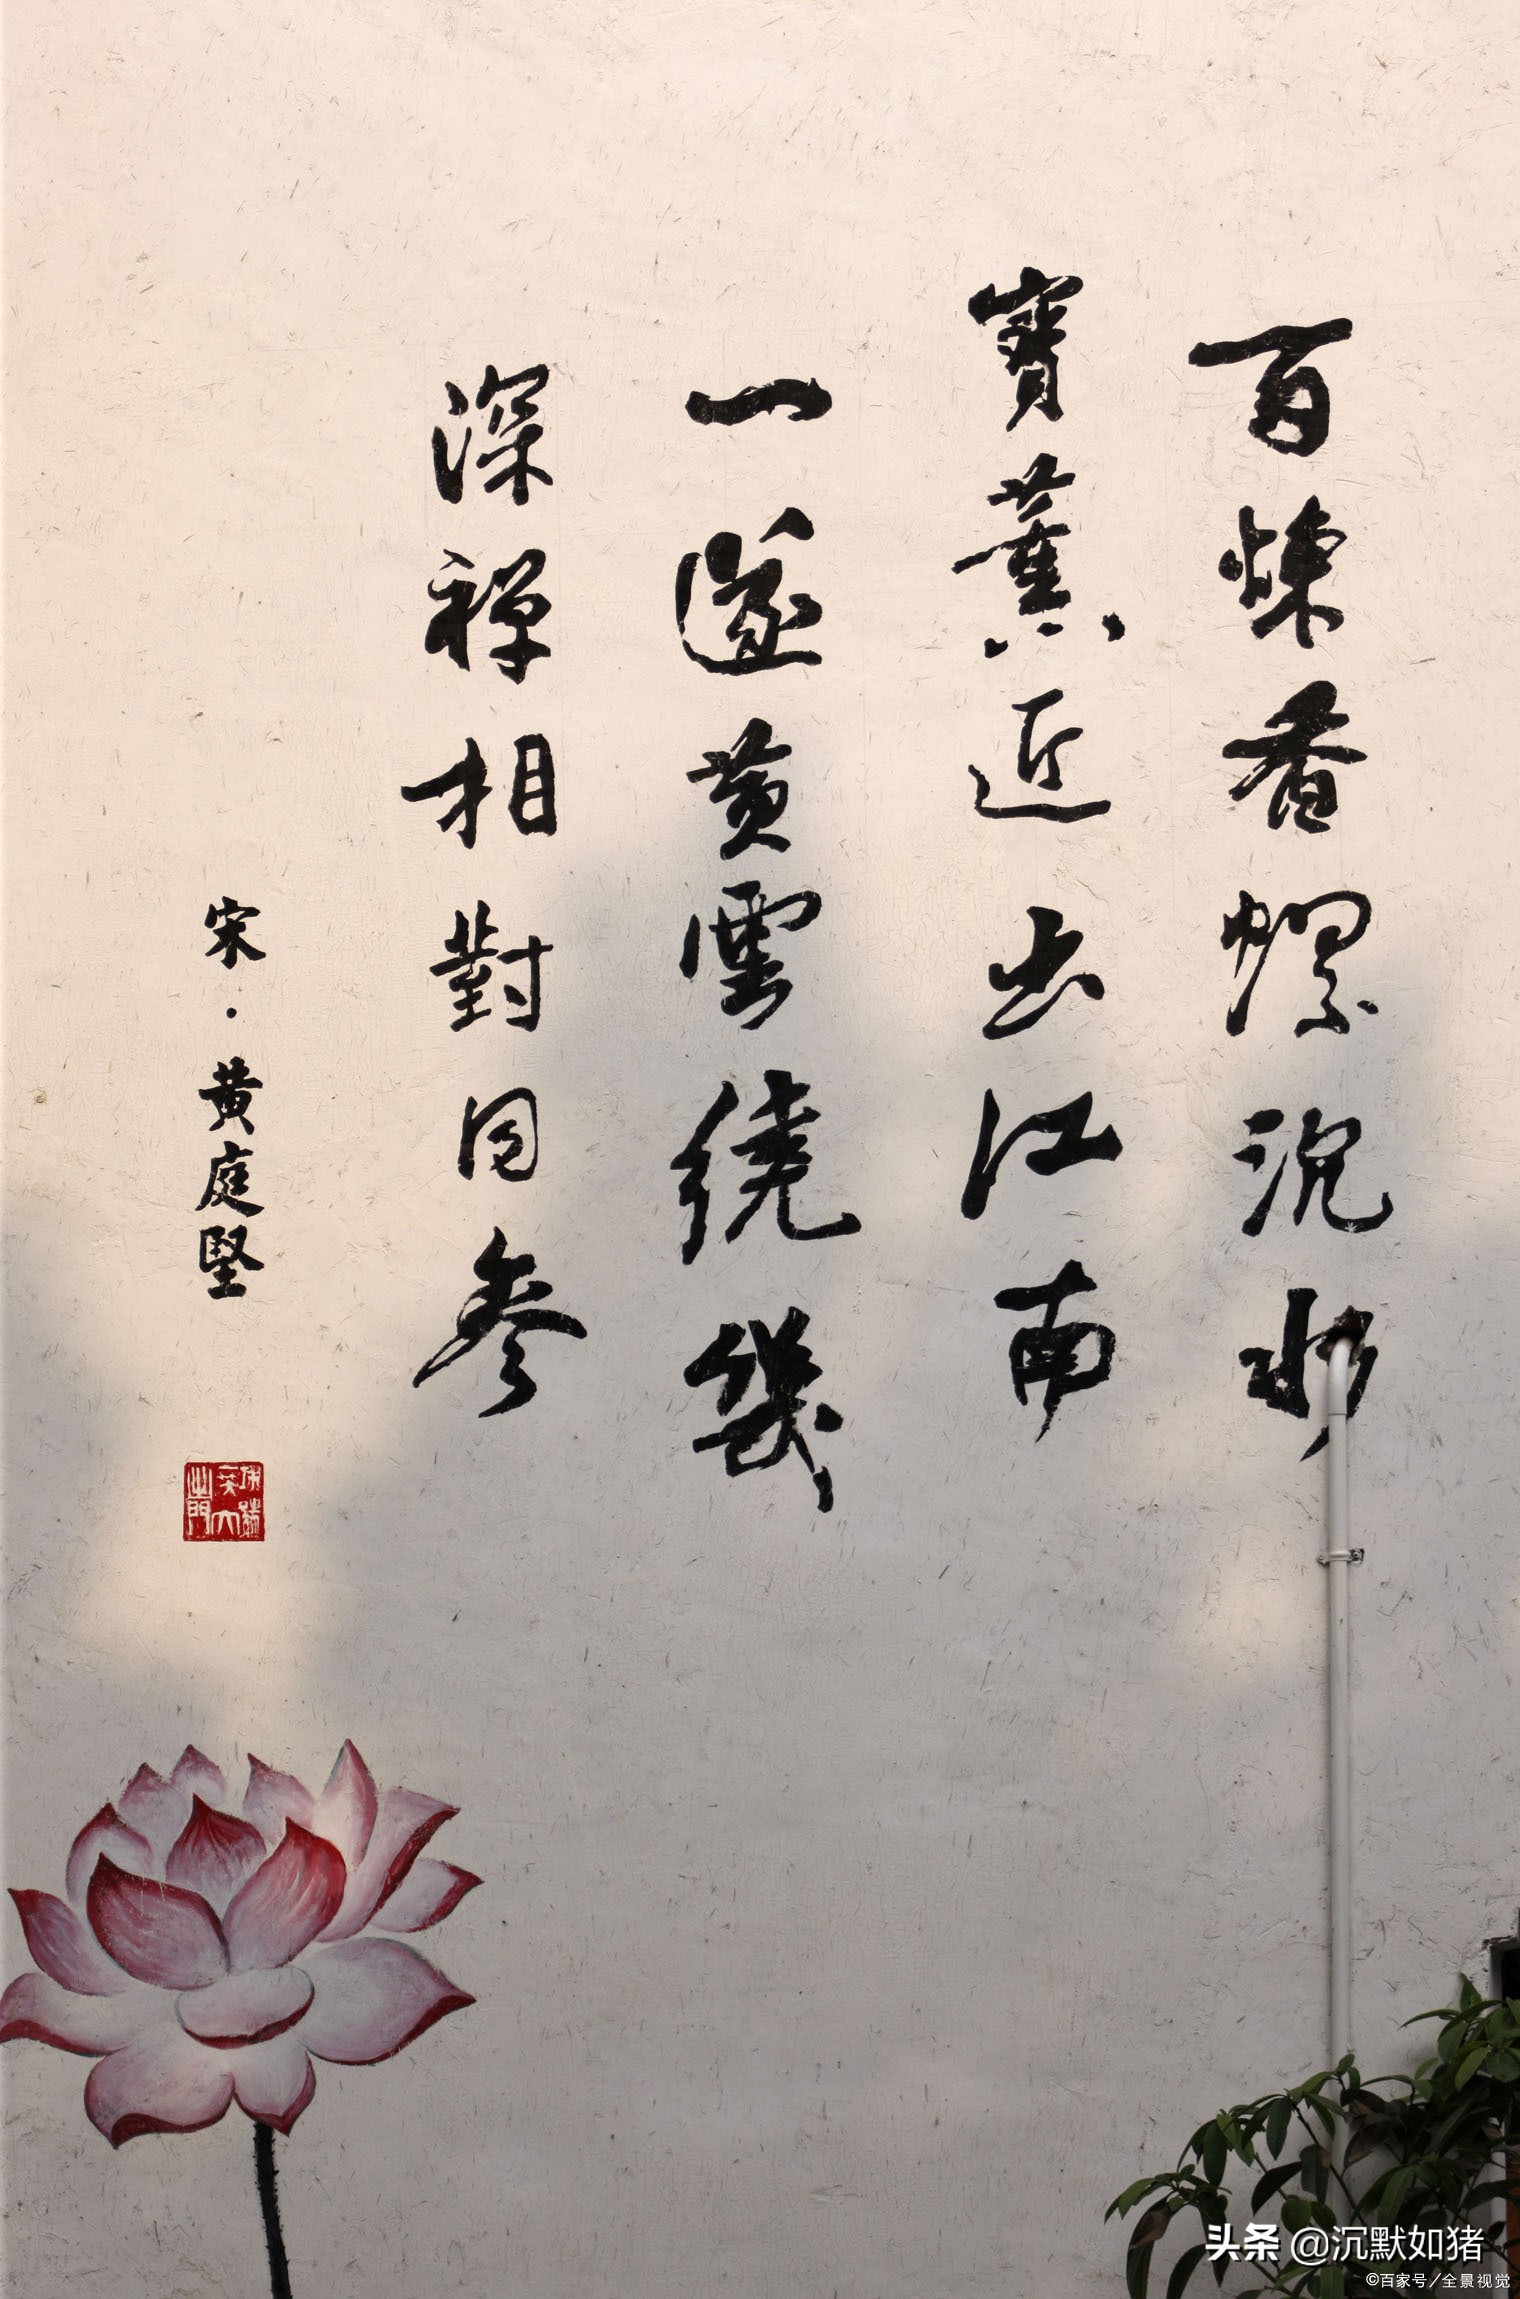 百煉香螺沉水
寶薰近出江南
一𨗉黄雲繞幾
深禪相對同參
宋·黄庭堅
头条 @沉默如猪
©百家号/全景视觉